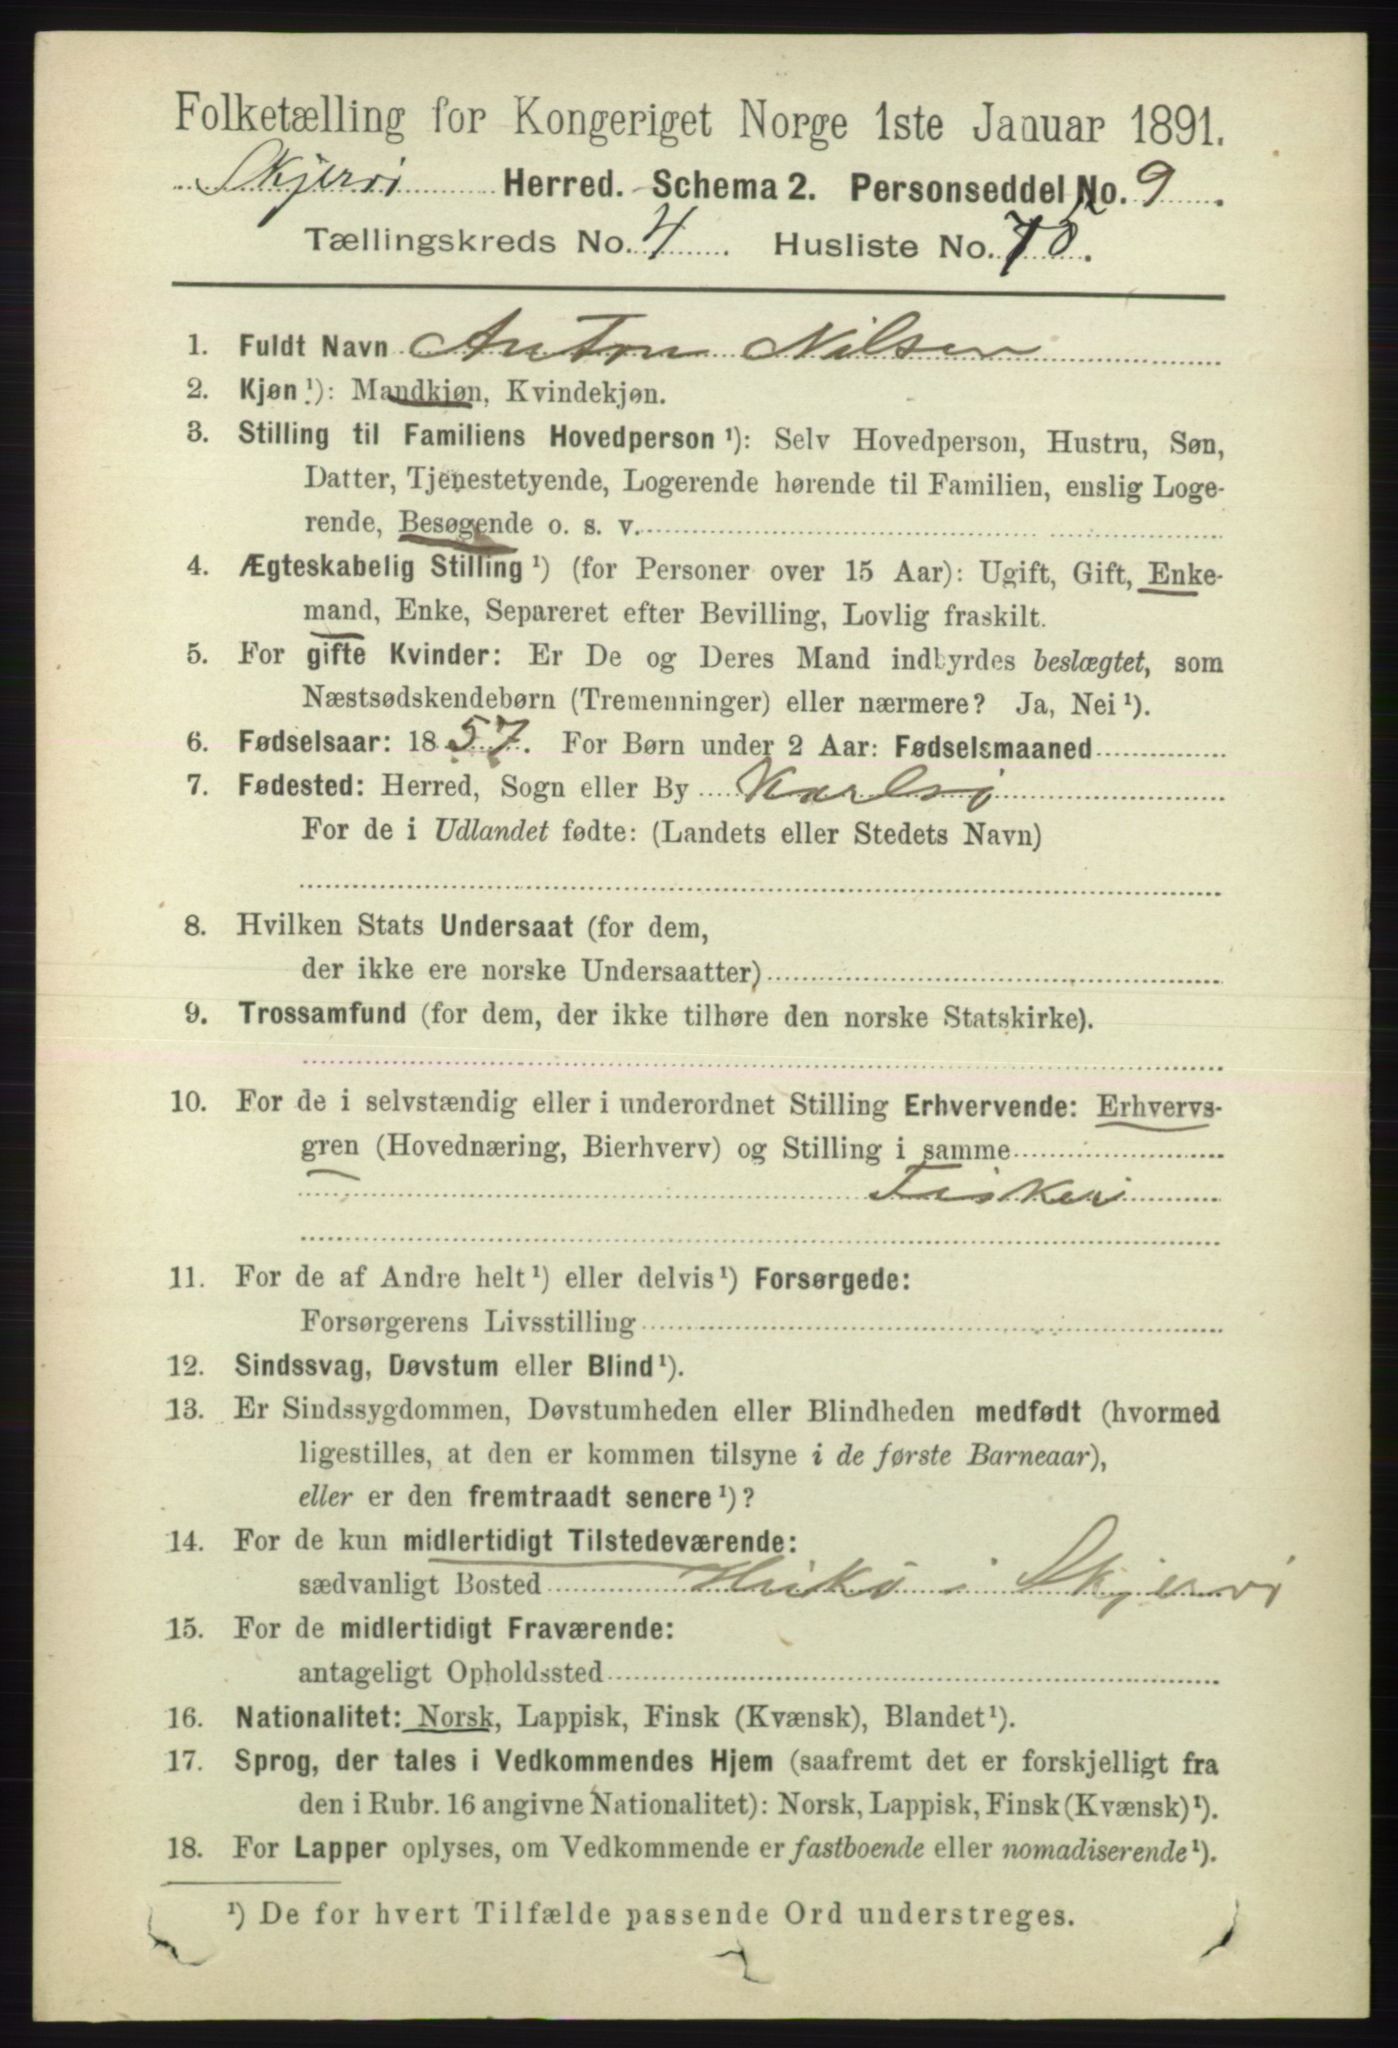 Folketælling for Kongeriget Norge 1ste Januar 1891.
Skjervø Herred. Schema 2. Personseddel No. 9
Tællingskreds No. 4 Husliste No.
1. Fuldt Navn Anton Nilsen
2. Kjøn ¹): Mandkjøn, Kvindekjøn.
3. Stilling til Familiens Hovedperson ¹): Selv Hovedperson, Hustru, Søn,
Datter, Tjenestetyende, Logerende hørende til Familien, enslig Loge-
rende, Besøgende o. s. v.
4. Ægteskabelig Stilling ¹) (for Personer over 15 Aar): Ugift, Gift, Enke-
mand, Enke, Separeret efter Bevilling, Lovlig fraskilt.
5. For gifte Kvinder: Er De og Deres Mand indbyrdes beslægtet, som
Næstsødskendebørn (Tremenninger) eller nærmere? Ja, Nei ¹).
6. Fødselsaar: 1857. For Børn under 2 Aar: Fødselsmaaned
7. Fødested: Herred, Sogn eller By Karlsø
For de i Udlandet fødte: (Landets eller Stedets Navn)
8. Hvilken Stats Undersaat (for dem,
der ikke ere norske Undersaatter)
9. Trossamfund (for dem, der ikke tilhøre den norske Statskirke).
10. For de i selvstændig eller i underordnet Stilling Erhvervende: Erhvervs-
gren (Hovednæring, Bierhverv) og Stilling i samme
Fiskeri
11. For de af Andre helt ¹) eller delvis ¹) Forsørgede:
Forsørgerens Livsstilling
12. Sindssvag, Døvstum eller Blind ¹).
13. Er Sindssygdommen, Døvstumheden eller Blindheden medfødt (hvormed
ligestilles, at den er kommen tilsyne i de første Barneaar),
eller er den fremtraadt senere ¹)?
14. For de kun midlertidigt Tilstedeværende:
sædvanligt Bosted i Skjervø
15. For de midlertidigt Fraværende:
antageligt Opholdssted
16. Nationalitet: Norsk, Lappisk, Finsk (Kvænsk), Blandet ¹).
17. Sprog, der tales i Vedkommendes Hjem (saafremt det er forskjelligt fra
den i Rubr. 16 angivne Nationalitet): Norsk, Lappisk, Finsk (Kvænsk) ¹).
18. For Lapper oplyses, om Vedkommende er fastboende eller nomadiserende ¹).
¹) De for hvert Tilfælde passende Ord understreges.